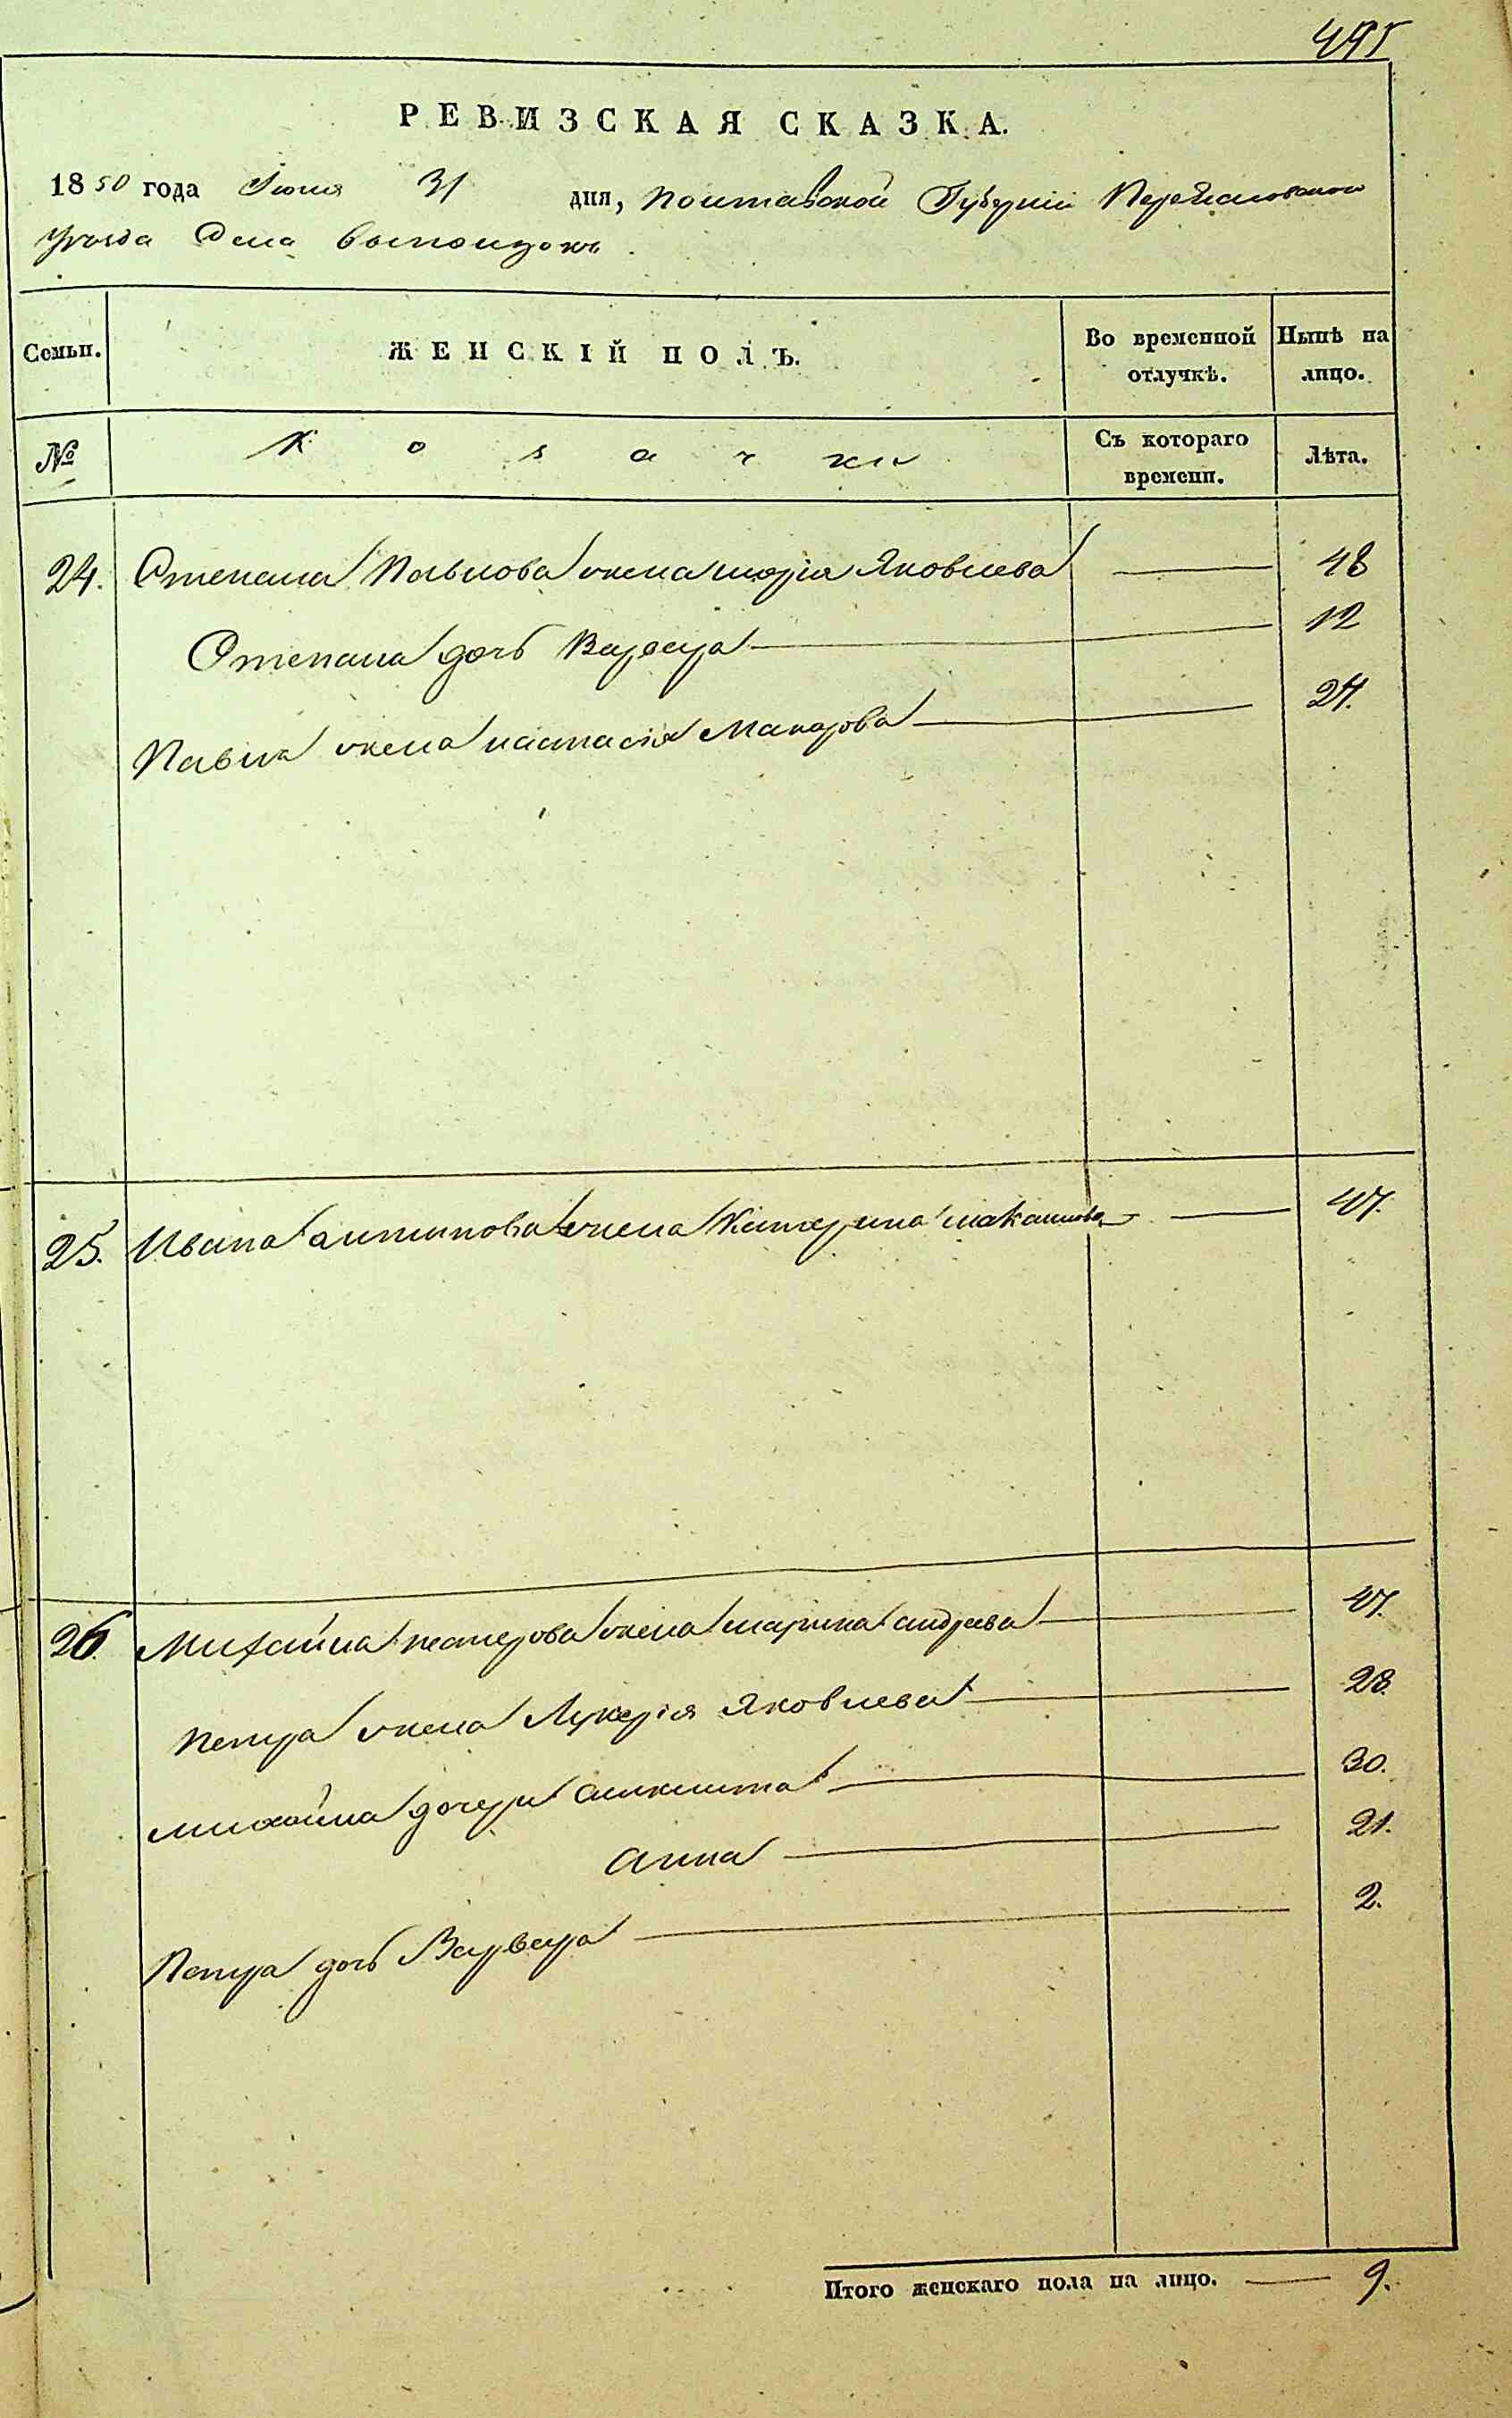 495
РЕВИЗСКАЯ СКАЗКА.
1850 года Июня 31 дня, Полтавской Губерніи Переяславского
уѣзда Села
Семьи. ЖЕНСКІЙ ПОЛЪ. Во временной отлучкѣ. Нынѣ на лицо.
№ Козачки Съ котораго времени. Лѣта.
24. Степана Павлова жена марія Яковлева 48
Степана дочь Варвара 12
Павла жена настасія Макарова 24.
25. Ивана антипова жена Катерина 47.
26. Михайла нестерова жена марина андреева 47.
Петра жена Лукерія Яковлева 28.
михайла дочери 30.
анна 21.
Петра дочь Варвара 2.
Итого женскаго пола на лицо. 9.